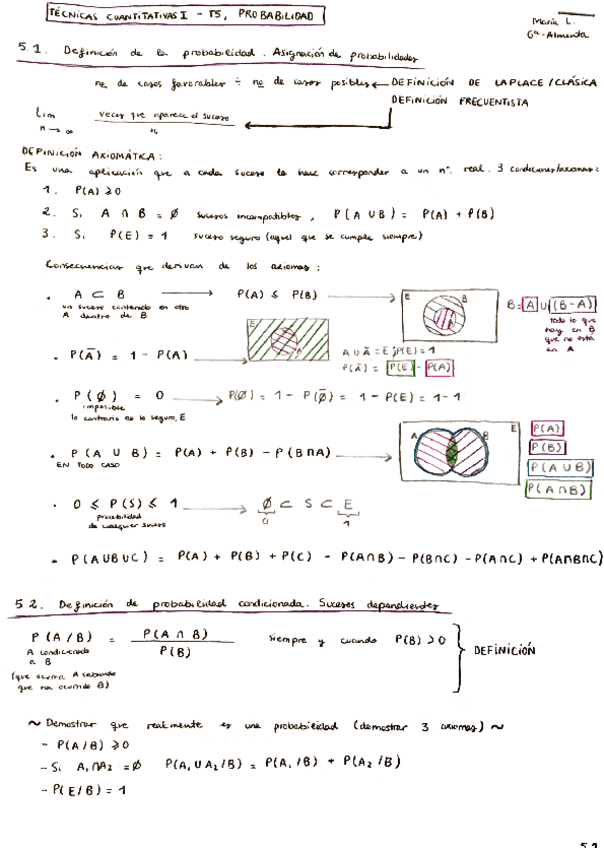 TÉCNICAS CUANTITATIVAS I - T5, PROBABILIDAD
María L.
Gª-Almenta
5.1. Definición de la probabilidad. Asignación de probabilidades
no de casos favorables ÷ no de casos posibles ← DEFINICIÓN DE LAPLACE/CLÁSICA
DEFINICIÓN FRECUENTISTA
Lim n → ∞ veces que aparece el suceso / n
DEFINICIÓN AXIOMÁTICA:
Es una aplicación que a cada suceso le hace corresponder a un nº. real. 3 condiciones/axiomas:
1. P(A) ≥ 0
2. Si A ∩ B = Ø sucesos incompatibles, P(A ∪ B) = P(A) + P(B)
3. Si P(E) = 1 suceso seguro (aquel que se cumple siempre)
Consecuencias que derivan de los axiomas:
· A ⊂ B → P(A) ≤ P(B) →
un suceso contenido en otro
A dentro de B
E B A
B = A ∪ (B-A)
todo lo que
hay en B
que no está
en A
· P(Ā) = 1 - P(A) →
E A
A ∪ Ā = E ; P(E) = 1
P(Ā) = P(E) - P(A)
· P(Ø) = 0 → P(Ø) = 1 - P(Ø̄) = 1 - P(E) = 1-1
imposible
lo contrario de lo seguro, E
· P(A ∪ B) = P(A) + P(B) - P(B∩A) →
EN TODO CASO
A B E
P(A)
P(B)
P(A ∪ B)
P(A ∩ B)
· 0 ≤ P(S) ≤ 1 → Ø ⊂ S ⊂ E
probabilidad
de cualquier suceso
0 1
· P(A∪B∪C) = P(A) + P(B) + P(C) - P(A∩B) - P(B∩C) - P(A∩C) + P(A∩B∩C)
5.2. Definición de probabilidad condicionada. Sucesos dependientes
P(A/B) = P(A ∩ B) / P(B) siempre y cuando P(B) > 0 } DEFINICIÓN
A condicionado
a B
(que ocurra A sabiendo
que ha ocurrido B)
~ Demostrar que realmente es una probabilidad (demostrar 3 axiomas) ~
- P(A/B) ≥ 0
- Si A₁∩A₂ = Ø P(A₁ ∪ A₂/B) = P(A₁/B) + P(A₂/B)
- P(E/B) = 1
5.1